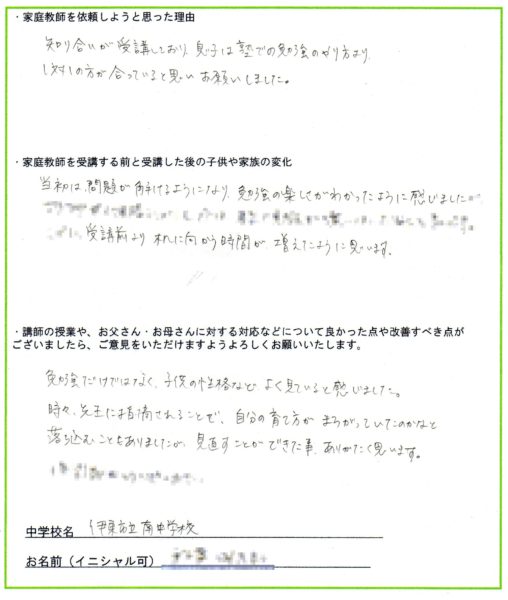 ・家庭教師を依頼しようと思った理由
知り合いが受講しており、息子は塾での勉強のやり方より、
1対1の方が合っていると思いお願いしました。
・家庭教師を受講する前と受講した後の子供や家族の変化
当初は、問題が解けるようになり、勉強の楽しさがわかったように感じましたが、
受講前より机に向かう時間が、増えたように思います。
・講師の授業や、お父さん・お母さんに対する対応などについて良かった点や改善すべき点が
ございましたら、ご意見をいただけますようよろしくお願いいたします。
勉強だけではなく、子供の性格など、よく見ていると感じました。
時々、先生に指摘されることで、自分の育て方が まちがっていたのかなと
落ち込むこともありましたが、見直すことができた事、ありがたく思います。
中学校名 伊東市立南中学校
お名前（イニシャル可）